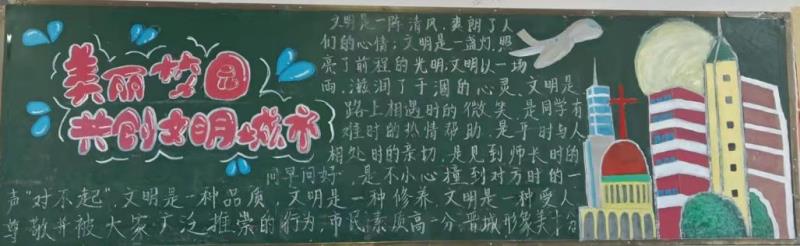 美丽校园
共创文明城市
文明是一阵清风,爽朗了人
们的心情;文明是一盏灯,照
亮了前程的光明;文明以一场
雨,滋润了干涸的心灵,文明是
路上相遇时的微笑,是同学有
难时的热情帮助,是平时与人
相处时的亲切,是见到师长时的
问早问好,是不小心撞到对方时的一
声“对不起”,文明是一种品质,文明是一种修养,文明是一种受人
尊敬并被大家广泛推崇的行为,市民素质高一分,晋城形象美十分